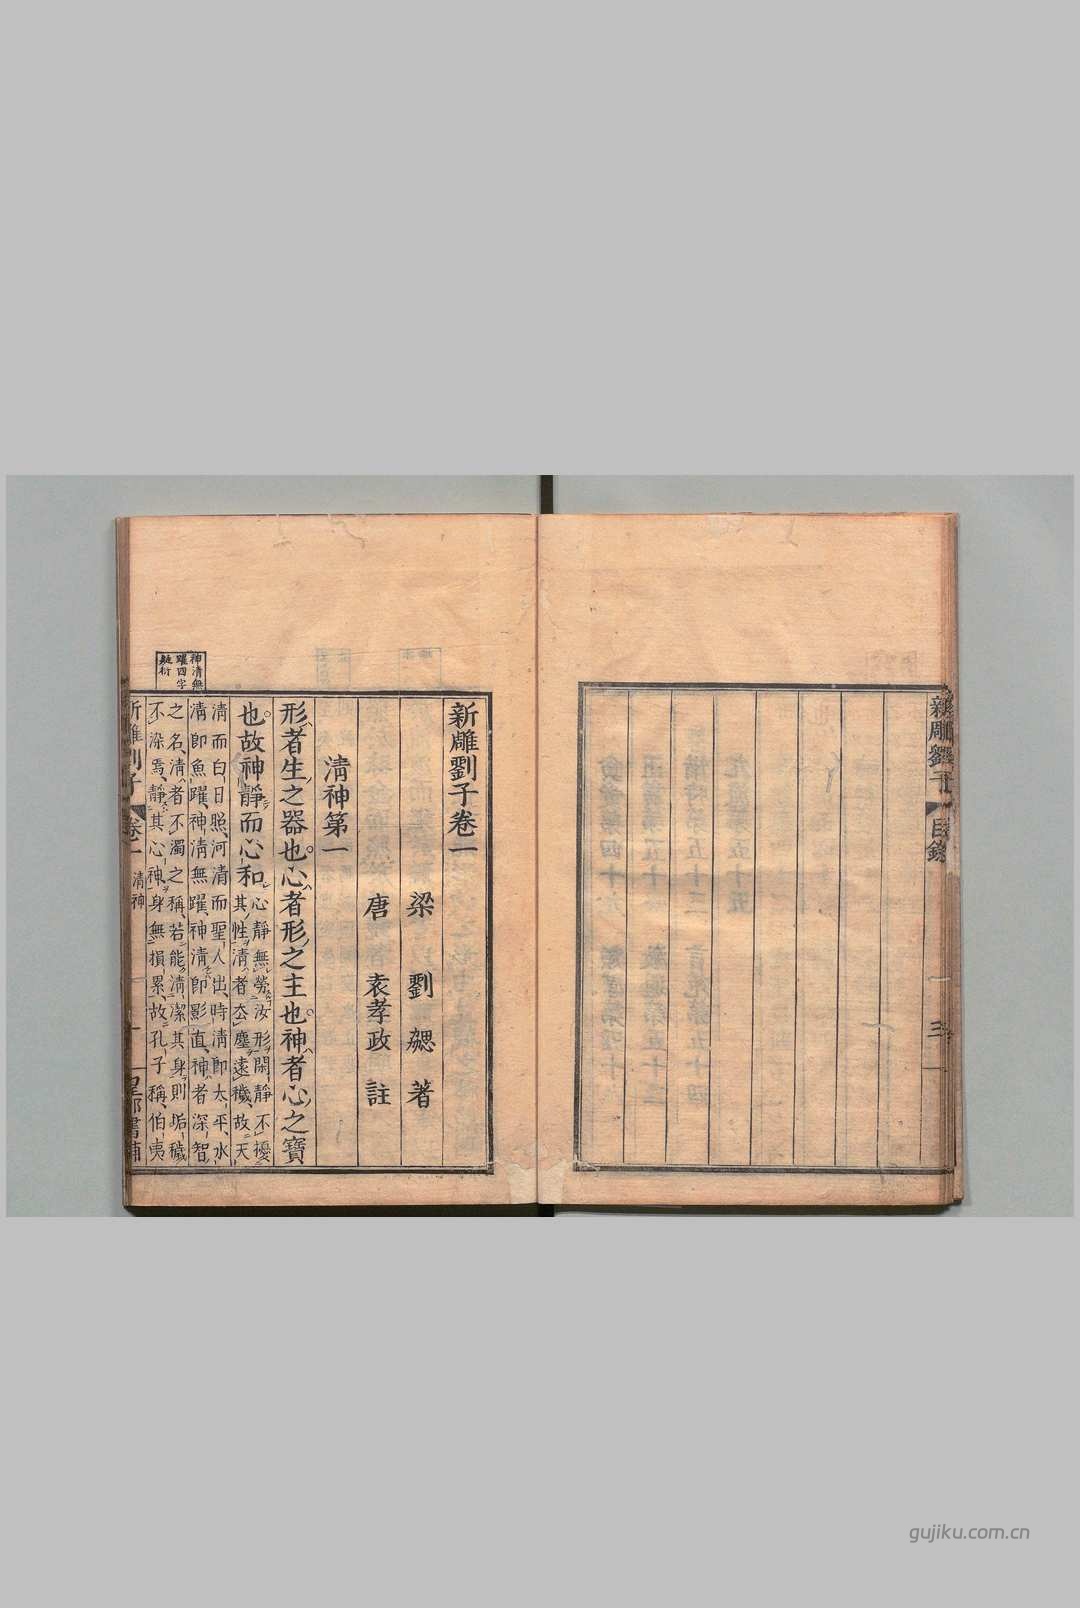 新雕劉子
目錄
三
新雕劉子卷一
梁　劉勰　著
唐　袁孝政　註
清神第一
形者生之器也心者形之主也神者心之寶
也故神靜而心和
心靜無勞汝形閑靜不擾
其性清者厺塵遠穢故天
清而白日照河清而聖人出時清即太平水
清即魚躍神清無躍神清即影直神者深智
之名清者不濁之稱若能清潔其身則垢穢
不染焉靜其心神身無損累故孔子稱伯夷
神清無
躍四字
疑衍
新雕劉子
卷一
清神
一
gujiku.com.cn